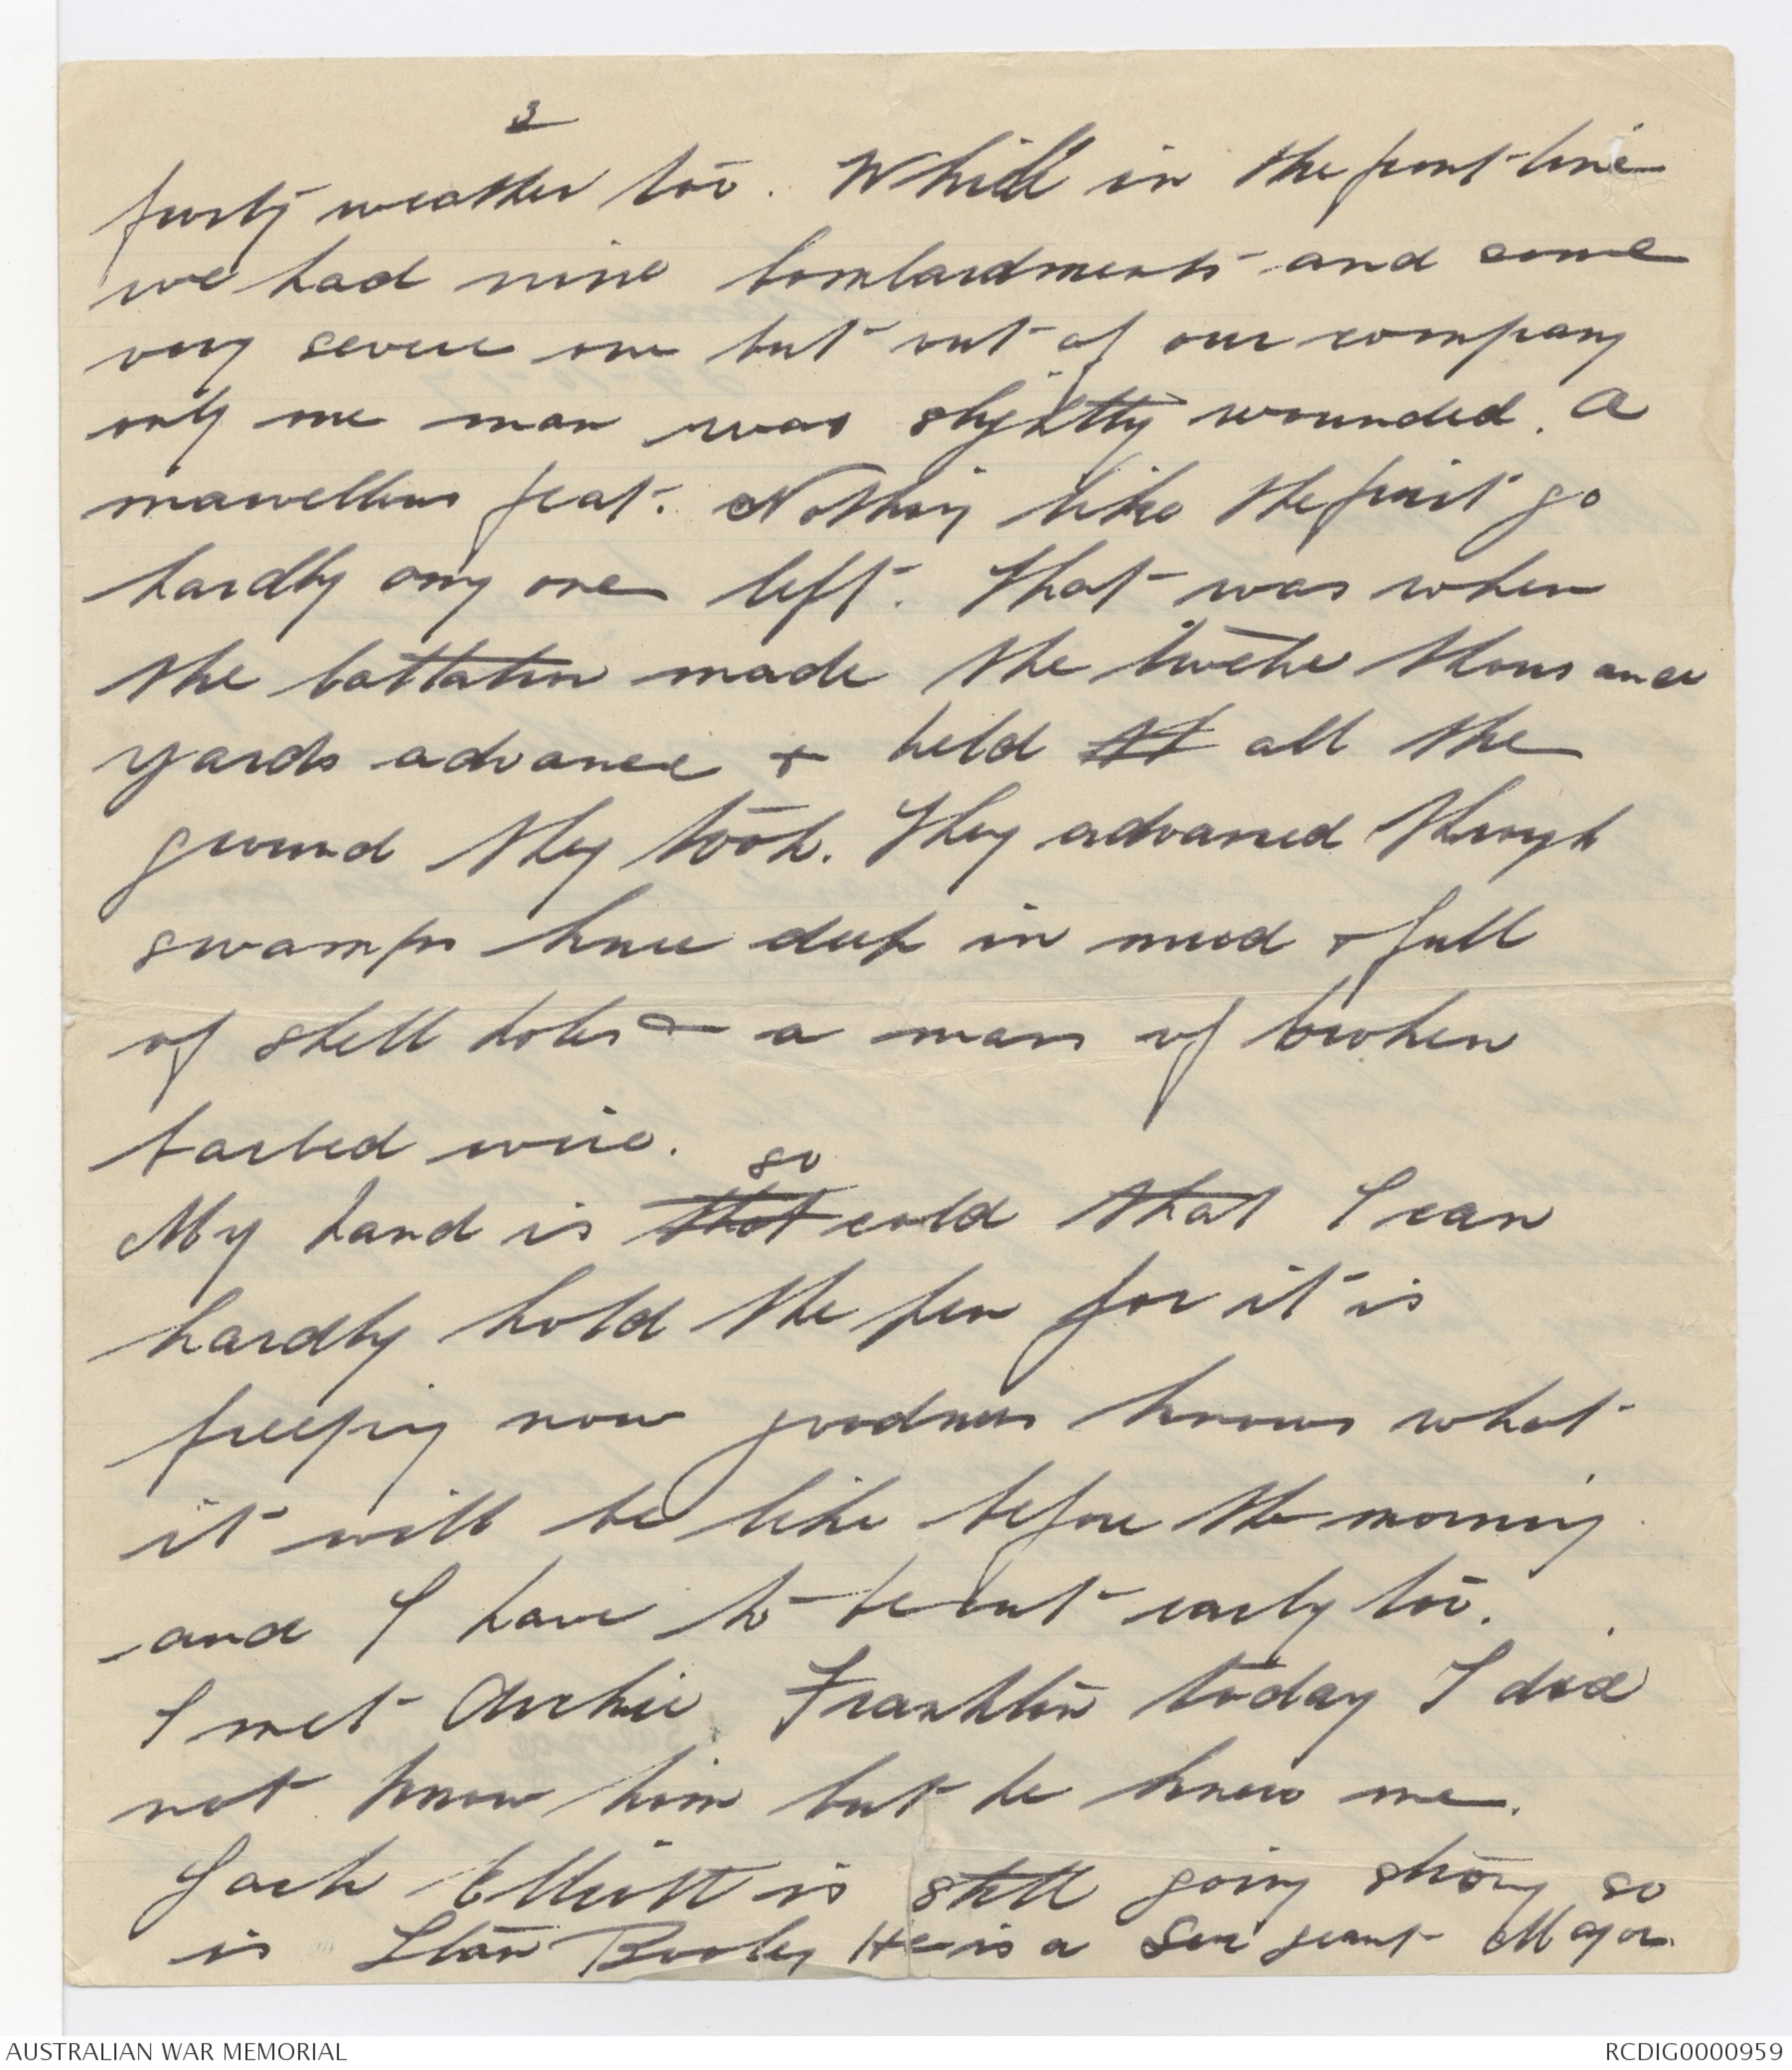 3
frosty weather too. Whilst in the front line
we had nine bombardments and some
very severe one but out of our company
only one man was slightly wounded. A
marvellous feat. Nothing like the first go
hardly any one left. That was when
the battalion made the twelve thousand
yards advance + held it all the
ground they took. They advanced through
swamps knee deep in mud + full
of shell holes & a mass of broken
barbed wire.
so
My hand is that cold that I can
hardly hold the pen for it is
freezing now goodness knows what
it will be like before the morning
and I have to be out early too.
I met Archie Franklin today I did
not know him but he knew me.
Jack Elliott is still going strong so
is Stan He is a Sergeant Major.
AUSTRALIAN WAR MEMORIAL
RCDIG0000959